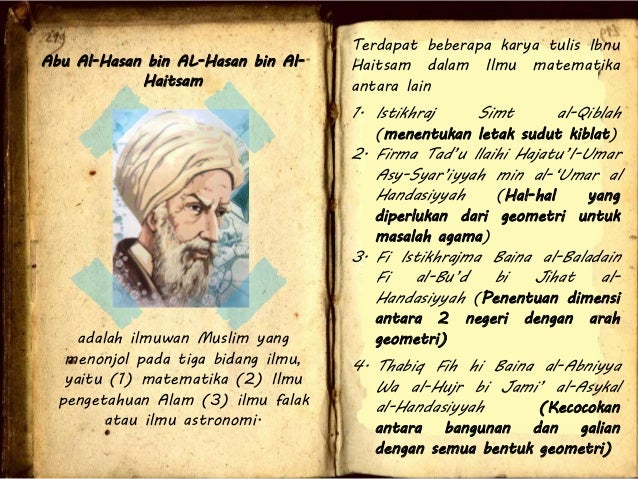 Abu Al-Hasan bin AL-Hasan bin Al-
Haitsam
adalah ilmuwan Muslim yang
menonjol pada tiga bidang ilmu,
yaitu (1) matematika (2) Ilmu
pengetahuan Alam (3) ilmu falak
atau ilmu astronomi.
Terdapat beberapa karya tulis Ibnu
Haitsam dalam Ilmu matematika
antara lain
1. Istikhraj Simt al-Qiblah
(menentukan letak sudut kiblat)
2. Firma Tad’u Ilaihi Hajatu’l-Umar
Asy-Syar’iyyah min al-‘Umar al
Handasiyyah (Hal-hal yang
diperlukan dari geometri untuk
masalah agama)
3. Fi Istikhrajma Baina al-Baladain
Fi al-Bu’d bi Jihat al-
Handasiyyah (Penentuan dimensi
antara 2 negeri dengan arah
geometri)
4. Thabiq Fih hi Baina al-Abniyya
Wa al-Hujr bi Jami’ al-Asykal
al-Handasiyyah (Kecocokan
antara bangunan dan galian
dengan semua bentuk geometri)